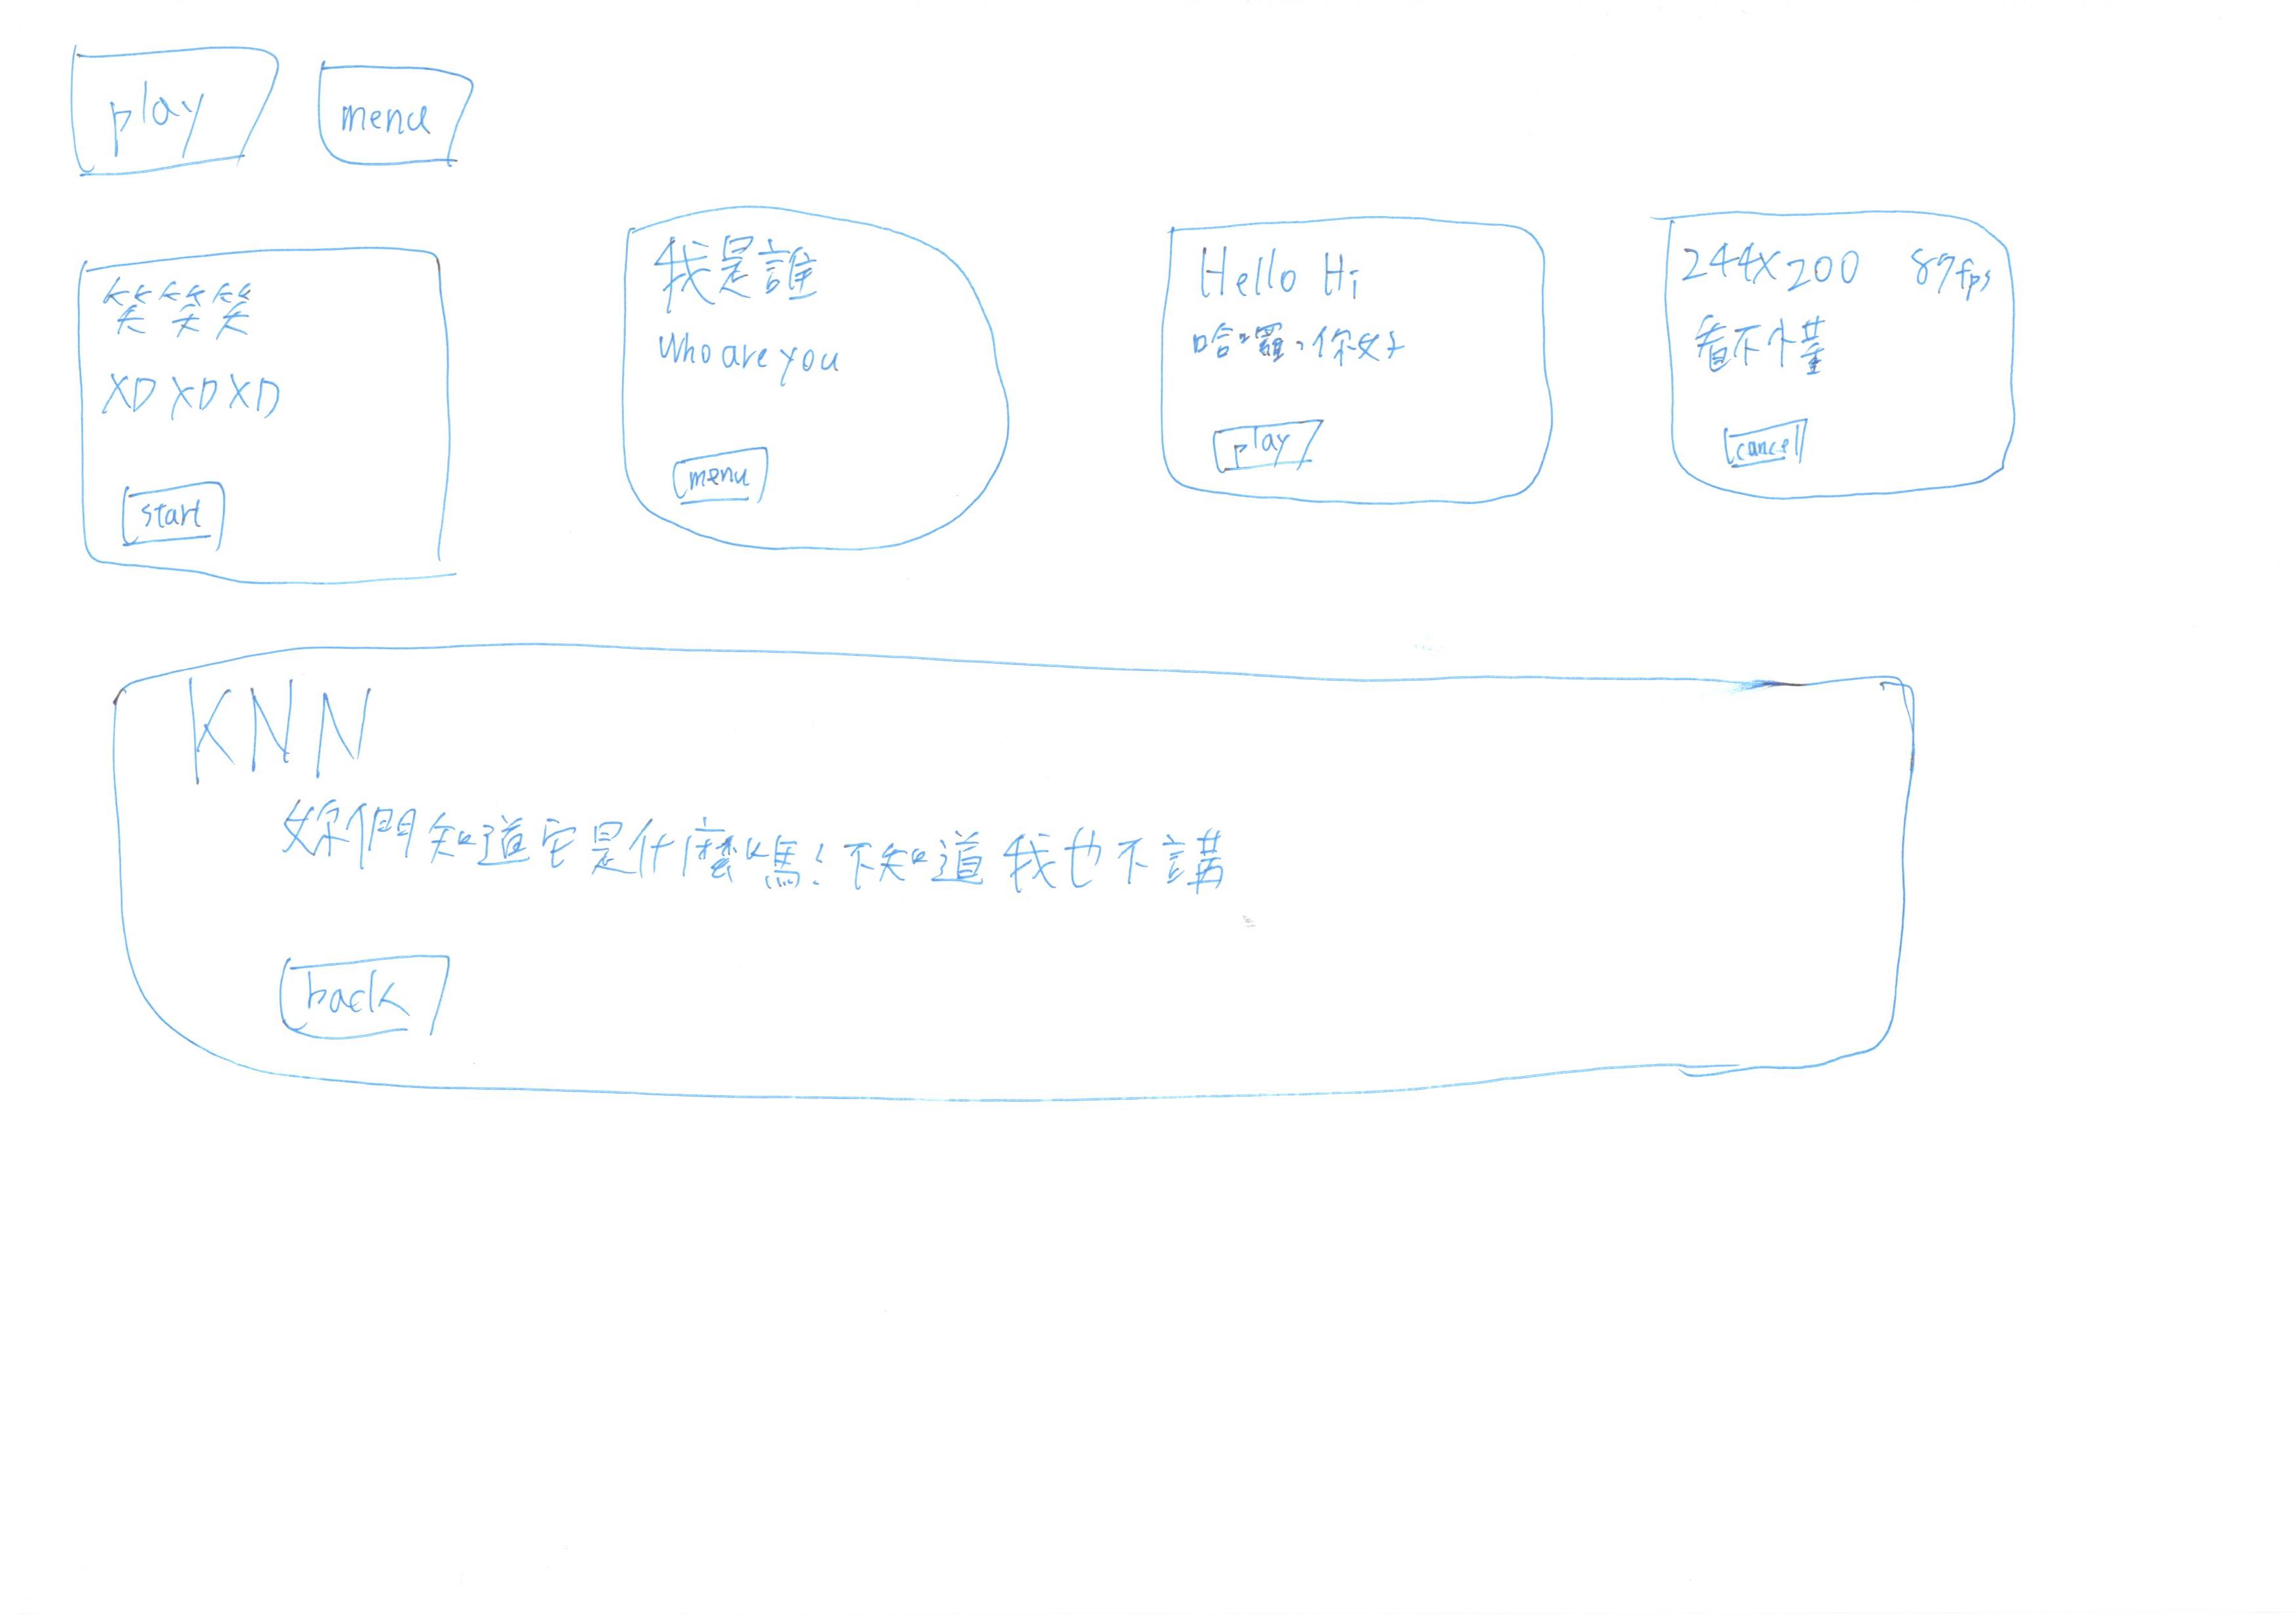 play
menu
笑笑笑
XD XD XD
start
我是誰
Who are you
menu
Hello Hi
哈囉,你好
play
244X200 87fps
看不懂
cancel
KNN
妳們知道它是什麼嗎?不知道我也不講
back